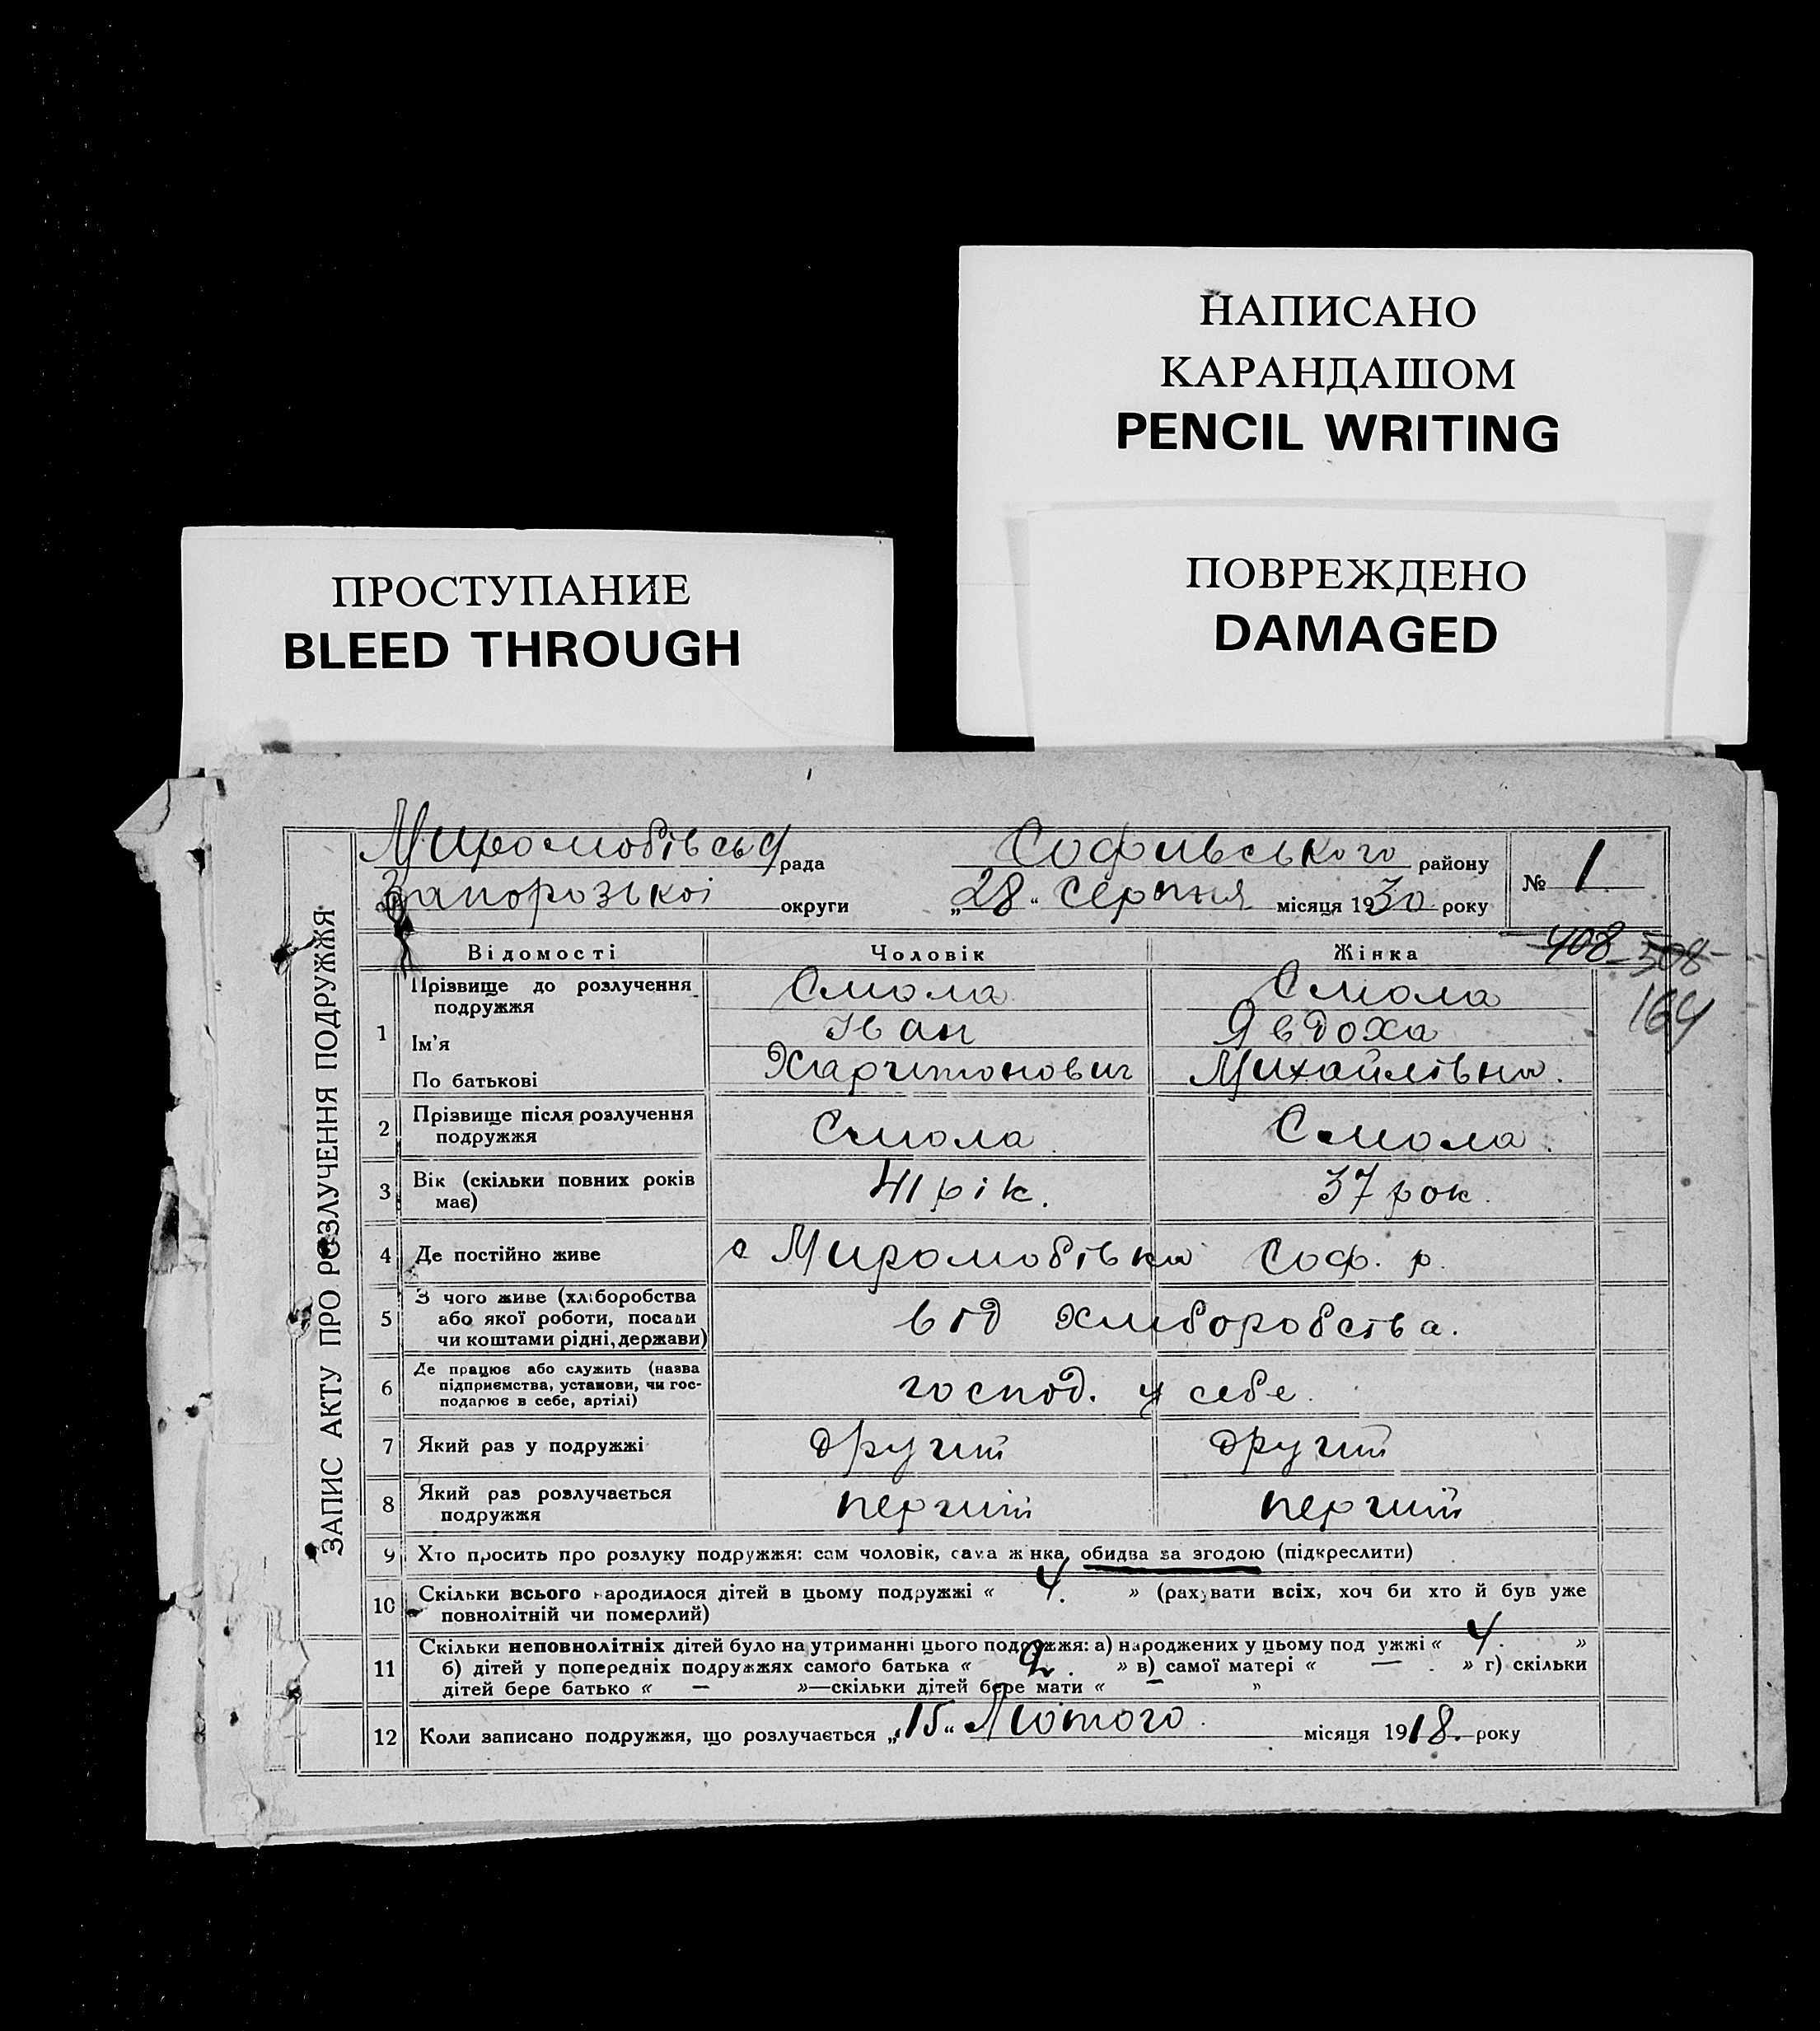 НАПИСАНО
КАРАНДАШОМ
PENCIL WRITING
ПОВРЕЖДЕНО
DAMAGED
ПРОСТУПАНИЕ
BLEED THROUGH
ЗАПИС АКТУ ПРО РОЗЛУЧЕННЯ ПОДРУЖЖЯ
рада Софиівського району
Запорозької округи „28“ Серпня місяця 1930 року
№ 1
408 508
164
Відомості Чоловік Жінка
1 Прізвище до розлучення подружжя Смола Смола
Ім'я Іван Явдоха
По батькові Харитонович Михайлівна.
2 Прізвище після розлучення подружжя Смола Смола.
3 Вік (скільки повних років має) 41 рік. 37 рок.
4 Де постійно живе с Миролюбівка Соф. р.
5 З чого живе (хліборобства або якої роботи, посади чи коштами рідні, держави) від хліборобства.
6 Де працює або служить (назва підприємства, установи, чи господарює в себе, артілі) господ. у себе.
7 Який раз у подружжі другий другий
8 Який раз розлучається подружжя перший перший
9 Хто просить про розлуку подружжя: сам чоловік, сама жінка, обидва за згодою (підкреслити)
10 Скільки всього народилося дітей в цьому подружжі « 4. » (рахувати всіх, хоч би хто й був уже
повнолітній чи померлий)
11 Скільки неповнолітніх дітей було на утриманні цього подружжя: а) народжених у цьому подружжі « 4. »
б) дітей у попередніх подружжях самого батька « 2. » в) самої матері « — . » г) скільки
дітей бере батько « — »—скільки дітей бере мати « — »
12 Коли записано подружжя, що розлучається „15“ Лютого місяця 1918. року